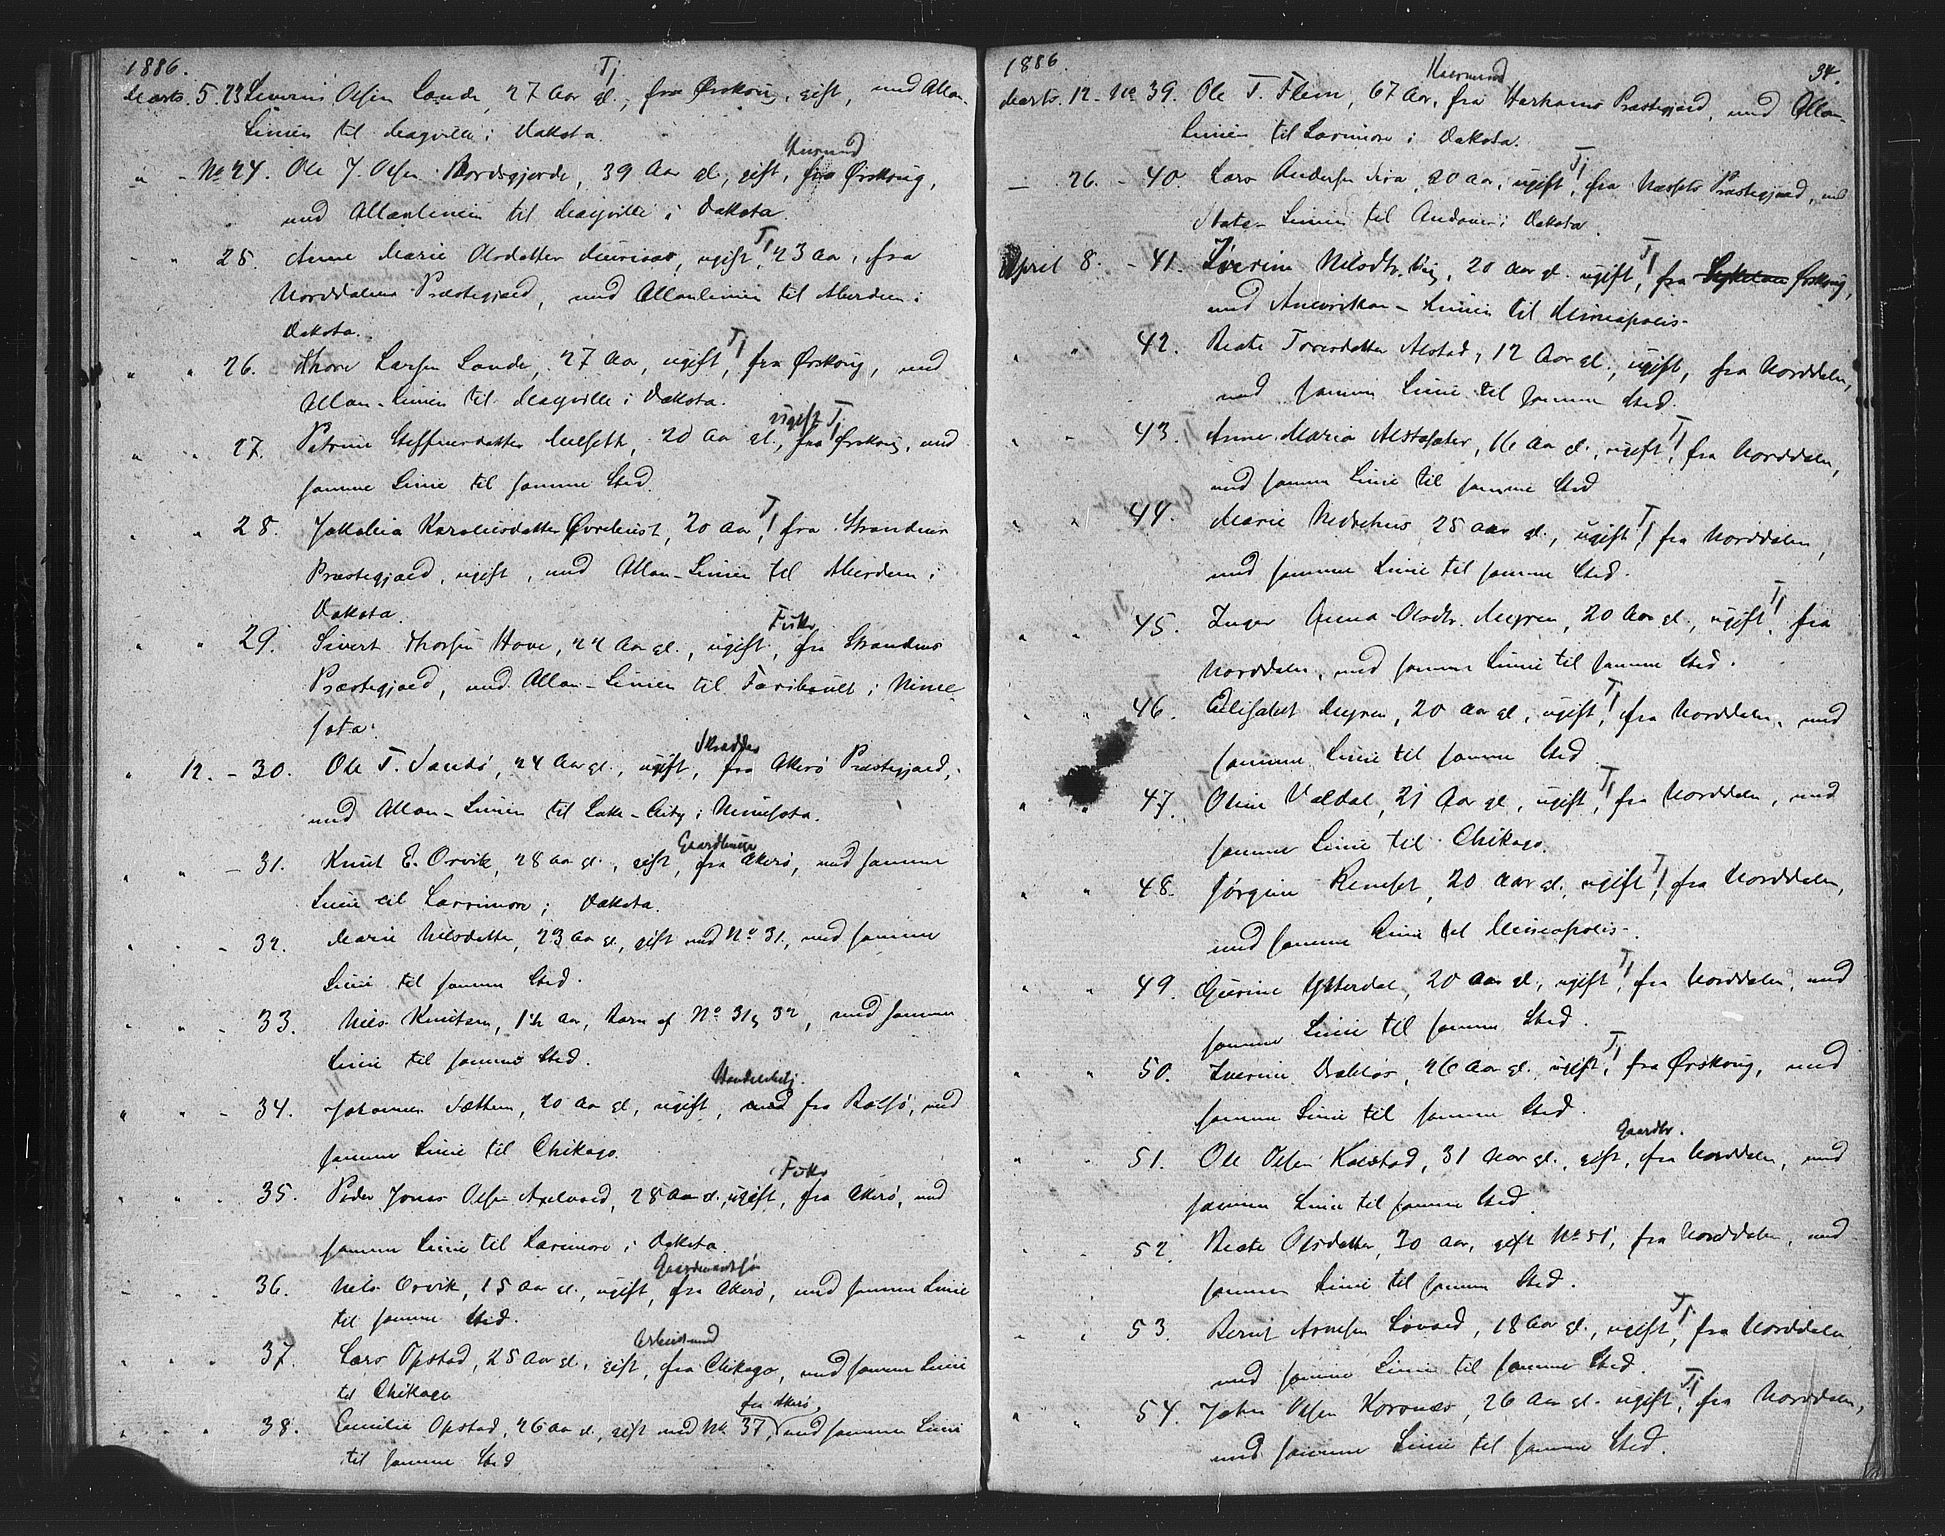 1886.
Marts. 5. 23 Severin Olsen Lande, 27 Aar gl., Tj fra Ørskoug, gift, med Allan-
Linien til Mayville i Dakota.
" - No 24. Ole J. Olsen 39 Aar gl., gift, Huusmd fra Ørskoug,
med Allanlinien til Mayville i Dakota.
" " 25. Anne Marie Olsdatter ugift, Tj 23 Aar, fra
Norddalens Præstegjæld, med Allanlinien til Aberdeen i
Dakota.
" " 26. Thore Larsen Lande, 27 Aar, ugift, Tj fra Ørskoug, med
Allan-Linien til Mayville i Dakota.
" " 27. Petrine Steffensdatter 20 Aar gl., ugift Tj fra Ørskoug, med
samme Linie til samme Sted.
" " 28. Jakobia Karolusdatter Øvrehust, 20 Aar, Tj fra Strandens
Præstegjæld, ugift, med Allan-Linien til Aberdeen i
Dakota.
" " 29. Sivert Thorsen Hove, 24 Aar gl., ugift, Fisker fra Strandens
Præstegjæld, med Allan-Linien til Faribault i Minne-
sota.
" 12. - 30. Ole T. Sandø, 24 Aar gl., ugift, Skrædder fra Akerø Præstegjæld,
med Allan-Linien til Lake-City i Minnesota.
" " - 31. Knut E. Orvik, 28 Aar gl., gift, fra Akerø, med samme
Linie til Larrimore i Dakota.
" " - 32. Marie Nilsdatter, 23 Aar gl., gift med No 31, med samme
Linie til samme Sted.
" " - 33. Nils Knutsen, 1½ Aar, Barn af No 31 & 32, med samme
Linie til samme Sted.
" " - 34. Johannes Sætten, 20 Aar gl., ugift, Handelsbetj. fra Bolsø, med
samme Linie til Chikago.
" " " 35. Peder Jonas Olsen 28 Aar gl., ugift, Fisker fra Akerø, med
samme Linie til Larimore i Dakota.
" " " 36. Nils Orvik, 15 Aar gl., ugift, Gaardmandssøn fra Akerø, med samme Linie
til samme Sted.
" " " 37. Lars Opstad, 25 Aar gl., gift, Arbeidsmd fra Chikago, med samme Linie
til Chikago
" " " 38. Emilie Opstad, 26 Aar gl., gift med No 37, fra Akerø, med samme Linie
til samme Sted
1886. 34.
Marts. 12 - No 39. Ole T. Flem, 67 Aar, Huusmand fra Harhams Præstegjæld, med Allan-
Linien til Larimore i Dakota.
" 26. - 40. Lars Andersen 20 Aar, ugift, Tj fra Næssets Præstegjæld, med
State-Linien til Andover i Dakota.
April 8. - 41. Iverine Nilsdtr. Vig, 20 Aar gl. ugift, Tj fra Ørskoug,
med Amerikan-Linien til Minneapolis-
" " 42. Beate Toresdatter Alstad, 12 Aar gl., ugift, fra Norddalen,
med samme Linie til samme Sted.
" " 43. Anne Maria 16 Aar gl., ugift, Tj fra Norddalen,
med samme Linie til samme Sted
" " 44. Marie Nedrehus, 25 Aar gl., ugift, Tj fra Norddalen,
med samme Linie til samme Sted.
" " 45. Inger Anna Olsdtr. Myren, 20 Aar gl., ugift, Tj fra
Norddalen, med samme Linie til samme Sted.
" " 46. Elisabet Myren, 20 Aar gl., ugift, Tj fra Norddalen, med
samme Linie til samme Sted
" " 47. Oline Valdal, 21 Aar gl., ugift, Tj fra Norddalen, med
samme Linie til Chikago.
" " 48. Jørgine Remset, 20 Aar gl. ugift, Tj fra Norddalen,
med samme Linie til Minneapolis-.
" " 49. Gurine Ytterdal, 20 Aar gl., ugift, Tj fra Norddalen, med
samme Linie til samme Sted.
" " 50. Iverine Drabløs, 26 Aar gl., ugift, Tj fra Ørskoug, med
samme Linie til samme Sted.
" " 51. Ole Olsen 31 Aar gl., gift, Gaardbr. fra Norddalen, med
samme Linie til samme Sted.
" " 52 Beate Olsdatter, 30 Aar, gift No 51, fra Norddalen, med
samme Linie til samme Sted.
" " 53. Bernt Arnesen Løvold, 18 Aar gl., ugift, Tj fra Norddalen
med samme Linie til samme Sted.
" " 54. John Olsen 26 Aar gl. ugift, Tj fra Norddalen,
med samme Linie til samme Sted.